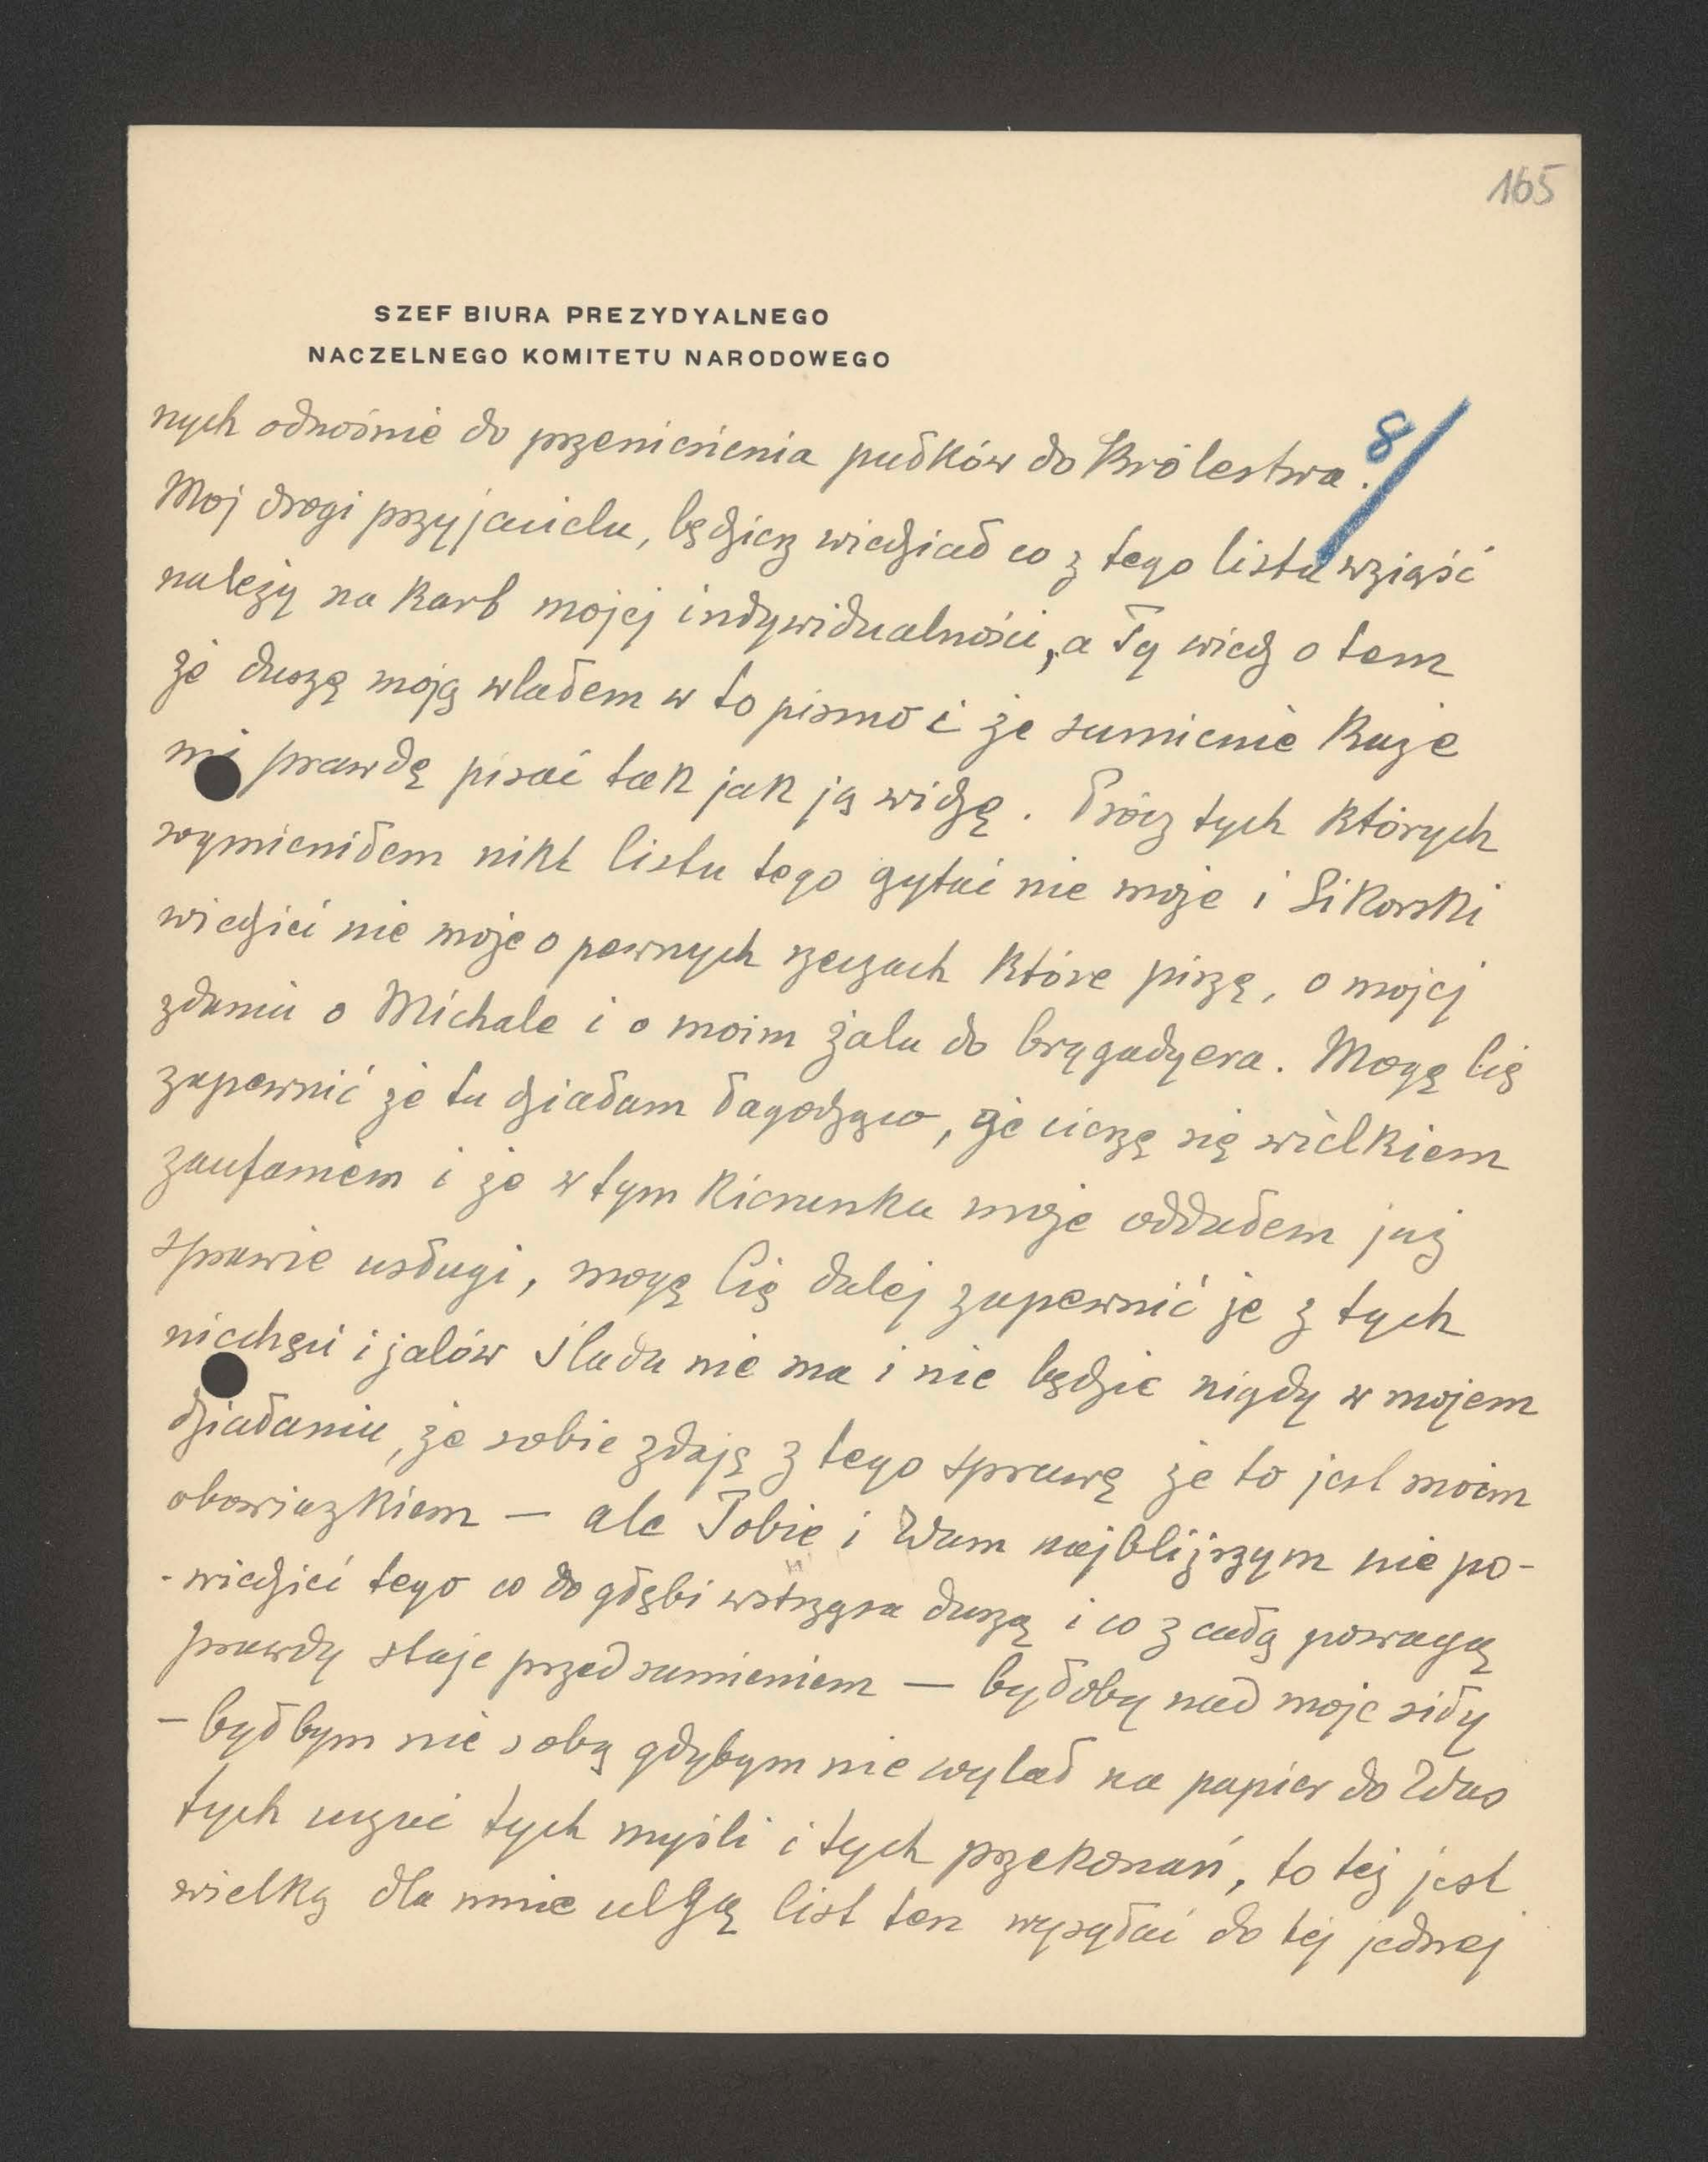 165
SZEF BIURA PREZYDYALNEGO
NACZELNEGO KOMITETU NARODOWEGO
8/
nych odnośnie do przeniesienia pułków do Królestwa.
Moj drogi przyjacielu, będziesz wiedział co z tego listu wziąść
należy na karb mojej indywidualności, a Ty wiedz o tem
że duszę moją wlałem w to pismo i że sumienie każe
mi prawdę pisać tak jak ją widzę. Prócz tych których
wymieniłem nikt listu tego czytać nie może i Sikorski
wiedzieć nie może o pewnych rzeczach które piszę, o mojej
zdaniu o Michale i o moim żalu do brygadyera. Mogę Cię
zapewnić że tu działam łagodząco, że cieszę się wielkiem
zaufaniem i że w tym kierunku może oddałem już
sprawie usługi, mogę Cię dalej zapewnić że z tych
niechęci i żalów śladu nie ma i nie będzie nigdy w mojem
działaniu, że sobie zdaję z tego sprawę że to jest moim
obowiązkiem — ale Tobie i Wam najbliższym nie po-
-wiedzieć tego co do głębi wstrząsa duszą i co z całą powagą
prawdy staje przed sumieniem — byłoby nad moje siły
— byłbym nie sobą gdybym nie wylał na papier do Was
tych uczuć tych myśli i tych przekonań, to też jest
wielką dla mnie ulgą list ten wysyłać do tej jednej